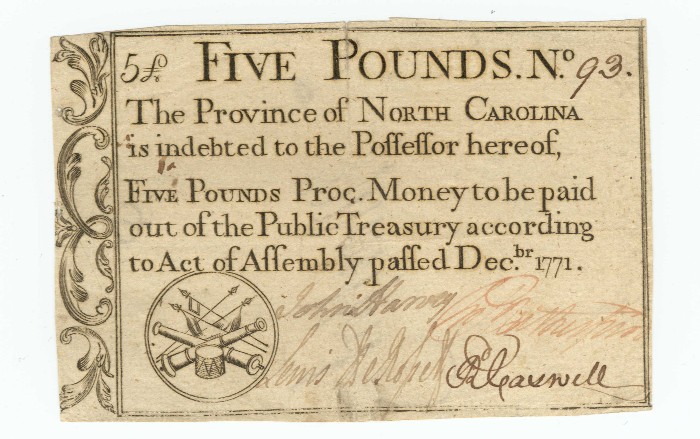 5£ FIVE POUNDS. No. 93.
The Province of NORTH CAROLINA
is indebted to the Poſſeſſor hereof,
FIVE POUNDS Proc. Money to be paid
out of the Public Treasury according
to Act of Aſſembly paſſed Dec.br 1771.
John Harvey
Lewis De Rosset
Rd Caswell